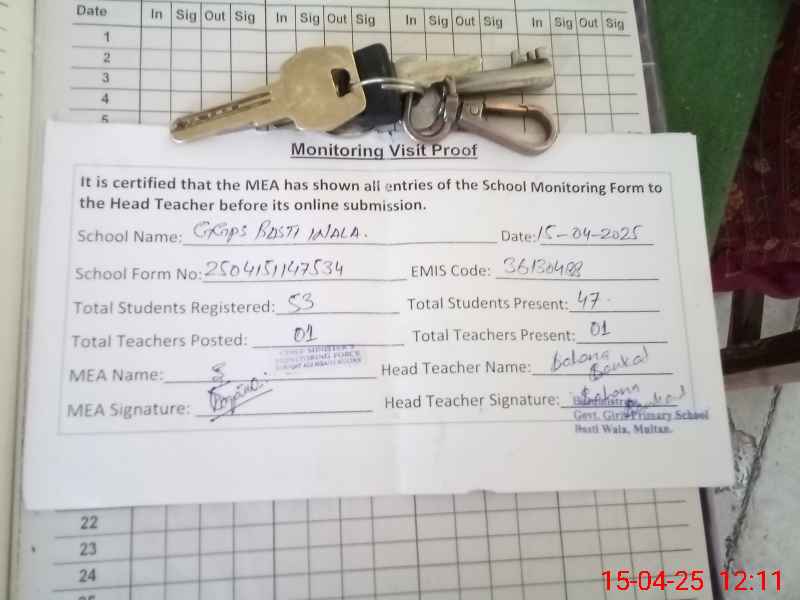 Date In Sig Out Sig In Sig Out Sig In Sig Out Sig In Sig Out Sig
1
2
3
4
5
Monitoring Visit Proof
It is certified that the MEA has shown all entries of the School Monitoring Form to
the Head Teacher before its online submission.
School Name: GGPS BASTI WALA. Date: 15-04-2025
School Form No: 2504151147534 EMIS Code: 36130488
Total Students Registered: 53 Total Students Present: 47
Total Teachers Posted: 01 Total Teachers Present: 01
CHIEF MINISTER'S
MONITORING FORCE
MEA Name: Head Teacher Name:
MEA Signature: Head Teacher Signature:
Govt. Girls Primary School
Basti Wala, Multan.
22
23
24
15-04-25 12:11